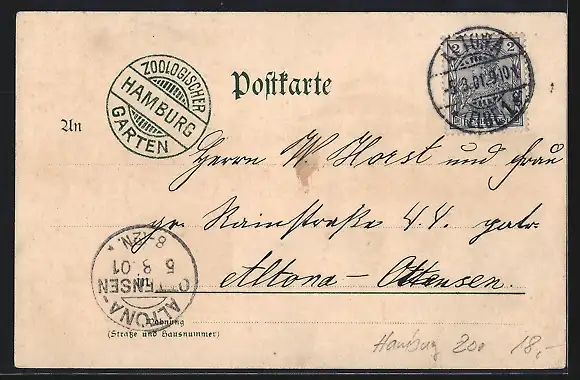 Postkarte
ZOOLOGISCHER
HAMBURG
GARTEN
2 2
ALTONA
An
Herrn W. Horst und Frau
gr. Rainstraße 44. part.
Altona - Ottensen.
ALTONA-
OTTENSEN
5 3 01
8-12N.
Wohnung
(Straße und Hausnummer)
Hamburg Zoo 18,-